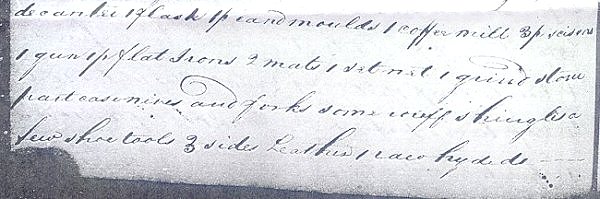 decanter 1 flask 1 p candmoulds 1 coffee mill 3 p scisors
1 gun 1 p flat Irons 2 mats 1 set net 1 grind stone
part case nives and forks some ruff shingles a
few shoe tools 3 sides Leather 1 raw hyde